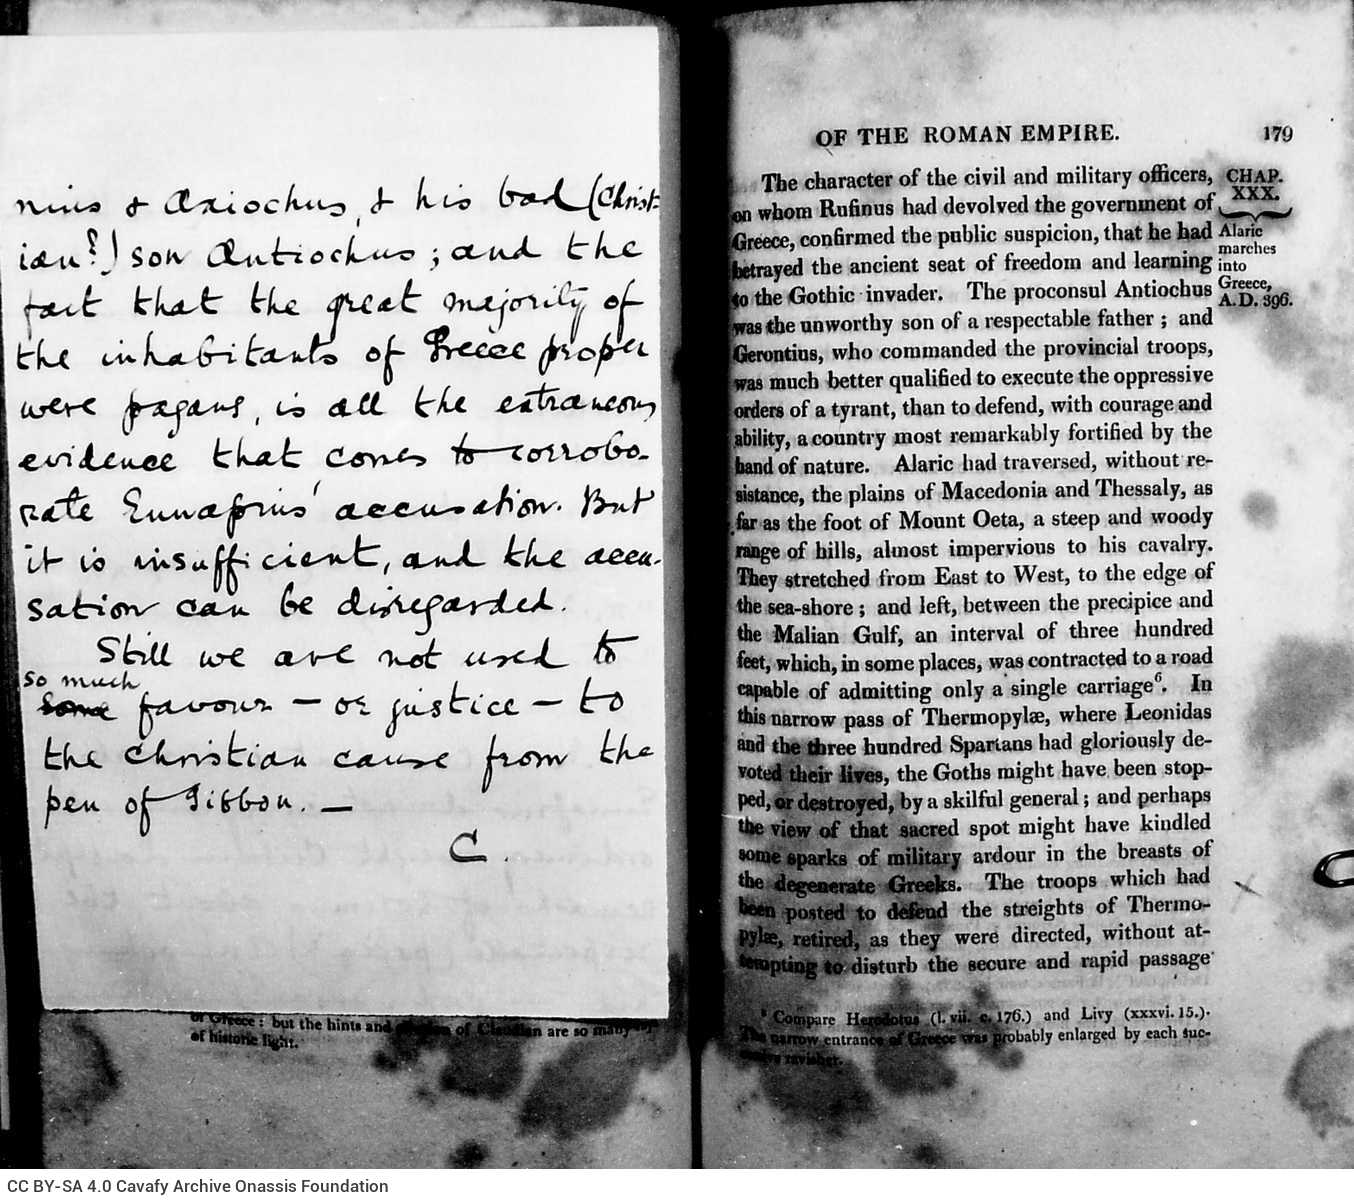 nius & Axiochus, & his bad (Christ=
ian?) son Antiochus; and the
fact that the great majority of
the inhabitants of Greece proper
were pagans, is all the extraneous
evidence that comes to corrobo-
rate Eunapius' accusation. But
it is insufficient, and the accu-
sation can be disregarded.
Still we are not used to
so much
some favour — or justice — to
the Christian cause from the
pen of Gibbon. —
C.
of Greece: but the hints and of Claudian are so many
of historic light.
OF THE ROMAN EMPIRE. 179
The character of the civil and military officers,
on whom Rufinus had devolved the government of
Greece, confirmed the public suspicion, that he had
betrayed the ancient seat of freedom and learning
to the Gothic invader. The proconsul Antiochus
was the unworthy son of a respectable father; and
Gerontius, who commanded the provincial troops,
was much better qualified to execute the oppressive
orders of a tyrant, than to defend, with courage and
ability, a country most remarkably fortified by the
hand of nature. Alaric had traversed, without re-
sistance, the plains of Macedonia and Thessaly, as
far as the foot of Mount Oeta, a steep and woody
range of hills, almost impervious to his cavalry.
They stretched from East to West, to the edge of
the sea-shore; and left, between the precipice and
the Malian Gulf, an interval of three hundred
feet, which, in some places, was contracted to a road
capable of admitting only a single carriage⁶. In
this narrow pass of Thermopylæ, where Leonidas
and the three hundred Spartans had gloriously de-
voted their lives, the Goths might have been stop-
ped, or destroyed, by a skilful general; and perhaps
the view of that sacred spot might have kindled
some sparks of military ardour in the breasts of
the degenerate Greeks. The troops which had
been posted to defend the streights of Thermo-
pylæ, retired, as they were directed, without at-
tempting to disturb the secure and rapid passage
CHAP.
XXX.
Alaric
marches
into
Greece,
A.D. 396.
⁶ Compare Herodotus (l. vii. c. 176.) and Livy (xxxvi. 15.).
The narrow entrance of Greece was probably enlarged by each suc-
cessive ravisher.
CC BY-SA 4.0 Cavafy Archive Onassis Foundation